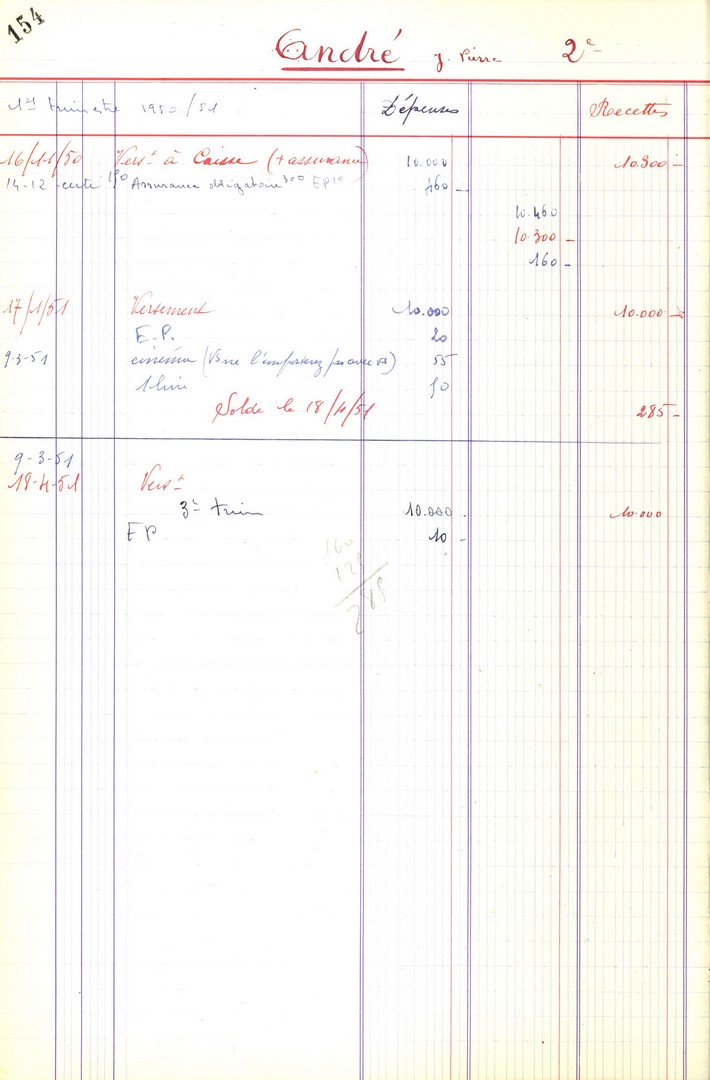 154
André J. Pierre 2e
1er trimestre 1950/51 Dépenses Recettes
16/11/50 Verst à Caisse (+ assurance) 10.000 10.300 -
14-12 carte 150 Assurance obligatoire 300 EP 10 460 -
10.460
10.300 -
160 -
17/1/51 Versement 10.000 10.000 -
E.P. 20
9-3-51 cinéma 55
1 livre 50
Solde le 18/4/51 285 -
9-3-51
18-4-51 Verst
3e trim 10.000 10.000
EP 10 -
160
125
285